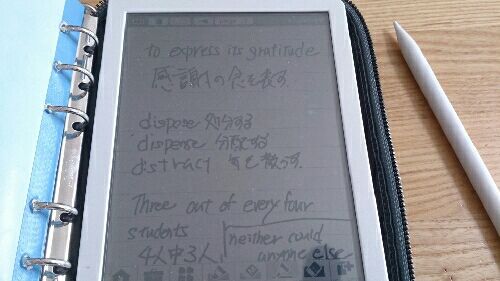 to express its gratitude
感謝の念を表す
dispose 処分する
dispense 分配する
distract 気を散らす
Three out of every four
students
4人中3人
neither could
anyone else